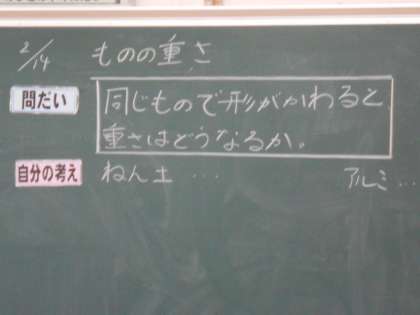 2/14 ものの重さ
問だい 同じもので形がかわると
重さはどうなるか。
自分の考え ねん土 … アルミ…